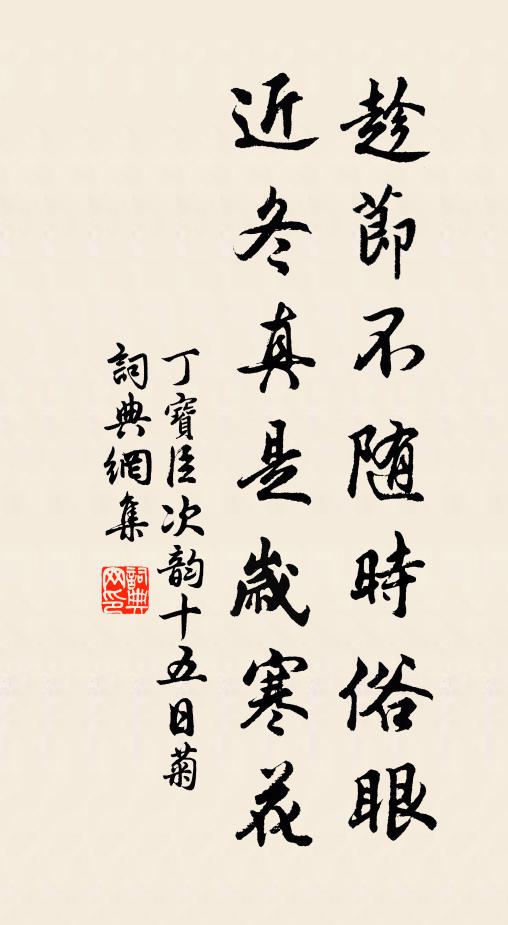 趁節不随時俗眼
近冬真是歳寒花
丁寶臣次韵十五日菊
詞典網集
詞典网印